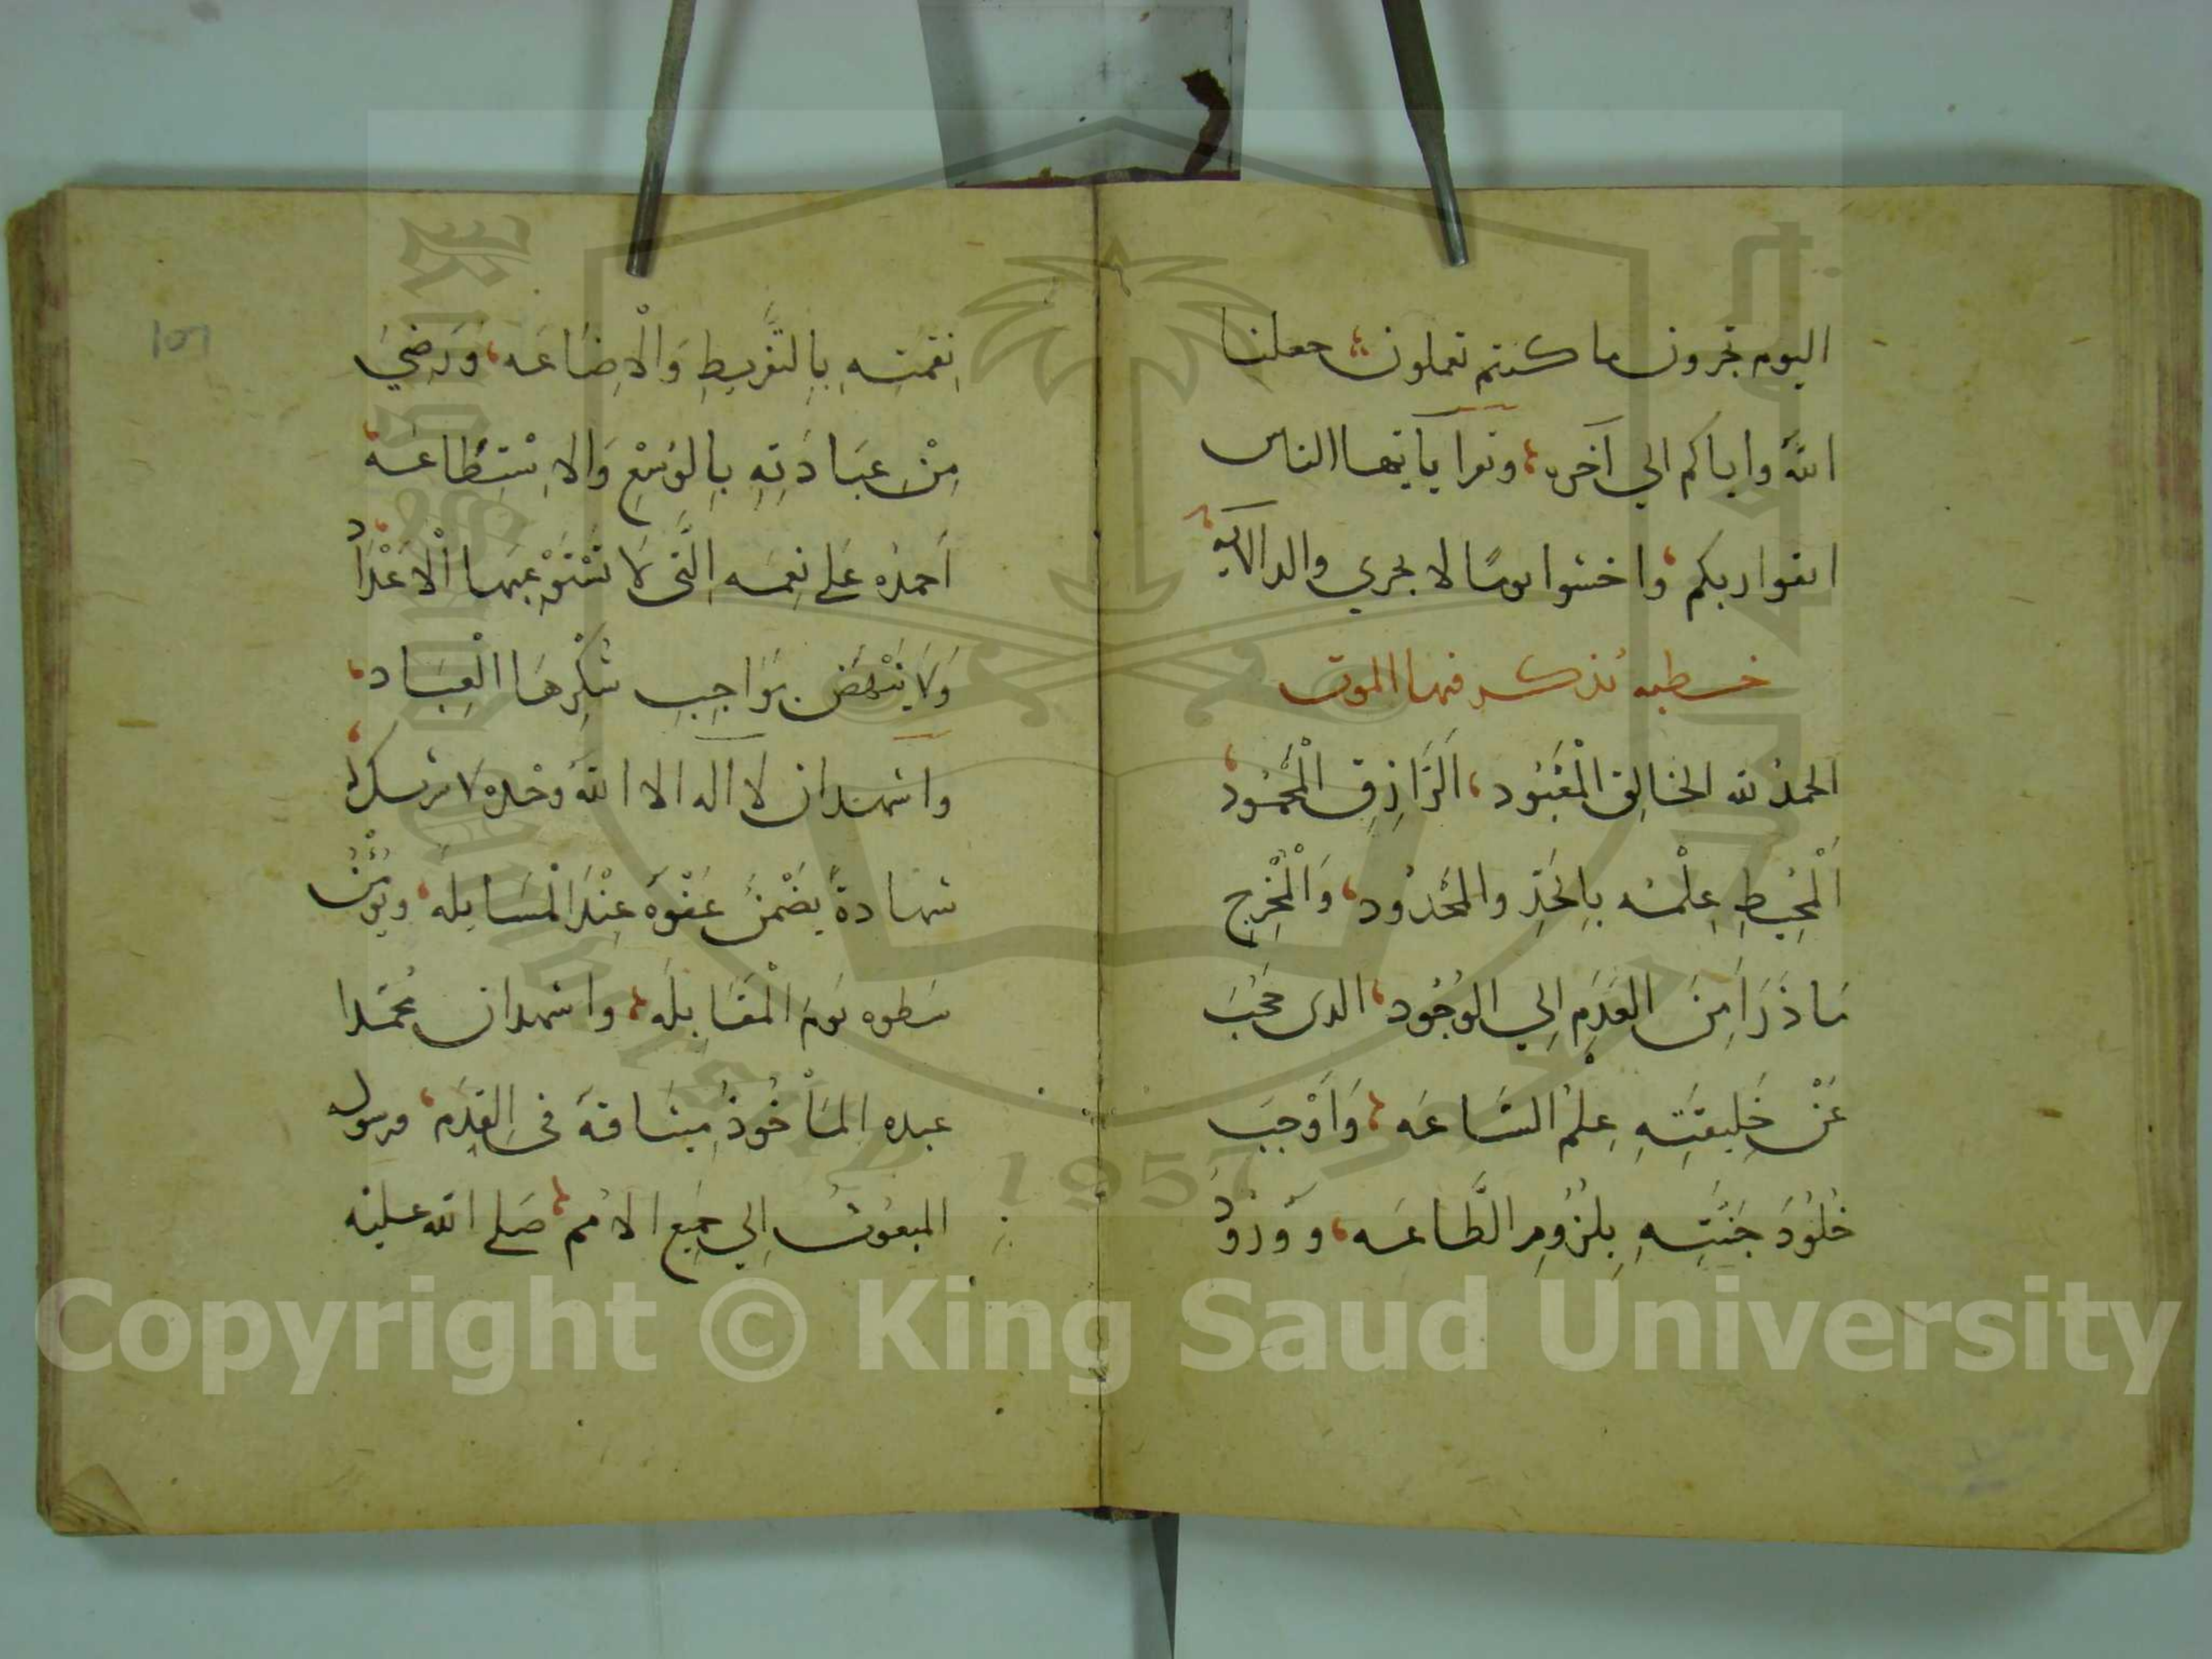 اليوم تجزون ما كنتم تعملون، جعلنا
الله واياكم الي آخره، وتقرا يا ايها الناس
اتقوا ربكم، واخشوا يومًا لا يجزي والد الاية،
خطبه نذكر فيها الموت
الحمدُ لله الخالِق الْمَعْبُود، اَلرَّازِقِ الْمَحْمُودِ،
اَلْمُحِيطِ عِلْمُه بِالحَدِّ والمَحْدُود، وَالْمُخْرِجِ
مَا ذَرَاَ مِنَ العَدَمِ اِلي الوُجُود، الدى حَجَبَ
عَنْ خَلِيقَتِهِ عِلْمُ السَّاعَه، وَاَوْجَبَ
خُلُوْدَ جَنَّتِهِ بِلُزُومِ الطَّاعَه، وَوُرُوْدَ
نِقمَتِهِ بِالتَّفْرِيطِ وَالْاِضَاعَه، وَرَضِيَ
مِنْ عِبَادَتِهِ بِالوُسْعِ وَالاِسْتِطَاعَه،
اَحمدُه عَلي نِعَمِه اِلَّتى لا تَسْتَوْعِبَها اْلاَعْدَاد،
وَلاَ يَنْهَض بِوَاجِبِ شُكْرِهَا الْعِبَاد،
واشهد ان لا اله الا اللهُ وحْده لا شريك له،
شهادةً يضْمَنُ عَفْوَه عِنْدَ الْمَسَايلَه، ويُؤْمِنُ
سَطوه يَومَ الْمقَابِلَه، واشهد ان مُحمَدا
عبده المَاْخُوذُ مِيثَاقهُ فى اِلقِدَم، ورسوله
المبعُوثُ اِلي جَميع الامُم، صَلي الله عليْه
101
Copyright © King Saud University
1957